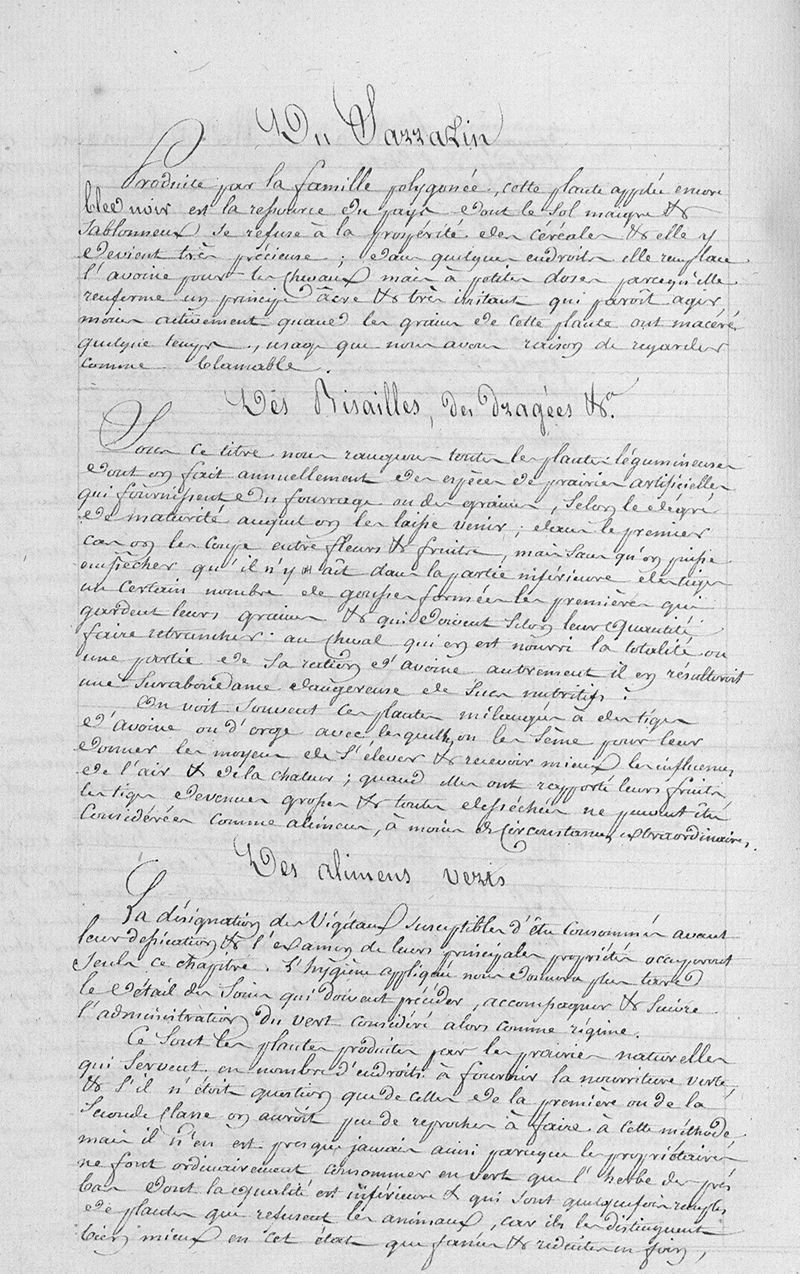 Du Sarrazin
Produite par la famille polygonée, cette plante appelée encore
bled noir est la ressource du pays dont le sol maigre &
sablonneux se refuse à la prospérité des céréales & elle y
devient très précieuse ; dans quelques endroits elle remplace
l'avoine pour les chevaux mais à petites doses parcequ'elle
renferme un principe âcre & très irritant qui paroit agir
moins activement quand les grains de cette plante ont macéré
quelque temps, usage que nous avons raison de regarder
comme blamable.
Des Bisailles, des dragées &a.
Sous ce titre nous rangeons toutes les plantes légumineuses
dont on fait annuellement des espèces de prairies artificielles
qui fournissent du fourrage ou des graines, selon le dégré
de maturité auquel on les laisse venir ; dans le premier
cas on les coupe entre fleurs & fruits, mais sans qu'on puisse
empêcher qu'il n'y ait dans la partie inférieure des tiges
un certain nombre de gousses formées les premières qui
gardent leurs graines & qui doivent selon leur quantité
faire retrancher au cheval qui en est nourri la totalité ou
une partie de sa ration d'avoine autrement il en résulteroit
une surabondance dangereuse de sucs nutritifs.
On voit souvent ces plantes mélangées à des tiges
d'avoine ou d'orge avec lesquelles on les sème pour leur
donner les moyens de s'élever & recevoir mieux les influences
de l'air & de la chaleur ; quand elles ont rapporté leurs fruits,
les tiges devenues grosses & toutes desséchées ne peuvent être
considérées comme alimens, à moins de circonstances extraordinaires.
Des alimens verts
La désignation des végétaux susceptibles d'être consommés avant
leur dessication & l'examen de leurs principales propriétés occuperont
seuls ce chapitre. L'hygiène appliquée nous donnera plus tard
le détail des soins qui doivent précéder, accompagner & suivre
l'administration du vert considéré alors comme régime.
Ce sont les plantes produites par les prairies naturelles
qui servent en nombre d'endroits à fournir la nourriture verte
& s'il n'étoit question que de celles de la première ou de la
seconde classe on auroit peu de reproches à faire à cette méthode
mais il n'en est presque jamais ainsi parceque les propriétaires
ne font ordinairement consommer en vert que l'herbe des prés
bas dont la qualité est inférieure & qui sont quelquefois remplis
de plantes que refusent les animaux, car ils les distinguent
bien mieux en cet état que fanées & réduites en foin,